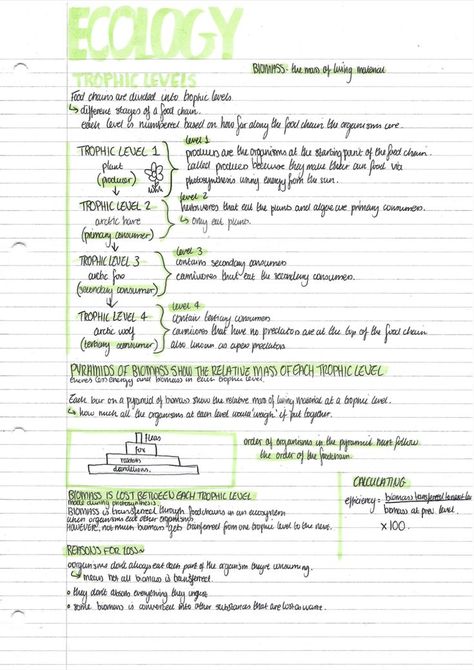 ECOLOGY
BIOMASS - the mass of living material
TROPHIC LEVELS
Food chains are divided into trophic levels.
↳ different stages of a food chain.
each level is numbered based on how far along the food chain the organisms are.
TROPHIC LEVEL 1
plant
(producer)
level 1
producers are the organisms at the starting point of the food chain.
called producers because they make their own food via
photosynthesis using energy from the sun.
TROPHIC LEVEL 2
arctic hare
(primary consumer)
level 2
herbivores that eat the plants and algae are primary consumers.
↳ only eat plants.
TROPHIC LEVEL 3
arctic fox
(secondary consumer)
level 3
contains secondary consumers
carnivores that eat the secondary consumers.
TROPHIC LEVEL 4
arctic wolf
(tertiary consumer)
level 4
contain tertiary consumers
carnivores that have no predators are at the top of the food chain
also known as apex predators
PYRAMIDS OF BIOMASS SHOW THE RELATIVE MASS OF EACH TROPHIC LEVEL
energy and biomass in each trophic level.
Each bar on a pyramid of biomass show the relative mass of living material at a trophic level.
↳ how much all the organisms at each level would 'weigh' if put together.
fleas
fox
rabbits
dandelions.
order of organisms in the pyramid must follow
the order of the foodchain.
BIOMASS IS LOST BETWEEN EACH TROPHIC LEVEL
made during photosynthesis.
BIOMASS is transferred through foodchains in an ecosystem
when organisms eat other organisms
HOWEVER, not much biomass gets transferred from one trophic level to the next.
CALCULATING
efficiency = biomass transferred to next
biomass at prev. level
x 100
REASONS FOR LOSS~
organisms don't always eat each part of the organism they're consuming.
↳ means not all biomass is transferred.
• they don't absorb everything they ingest
• some biomass is converted into other substances that are lost as waste.